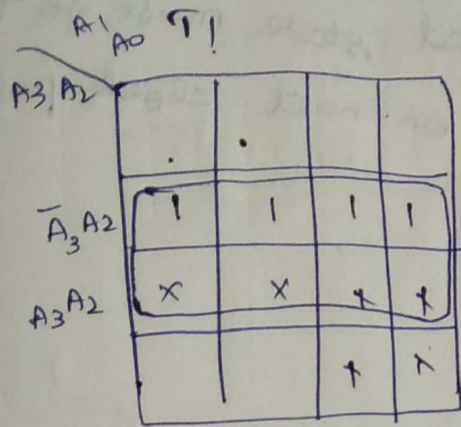 A1 A0 T1
A3, A2
Ā3 A2 1 1 1 1
A3 A2 X X X X
X X